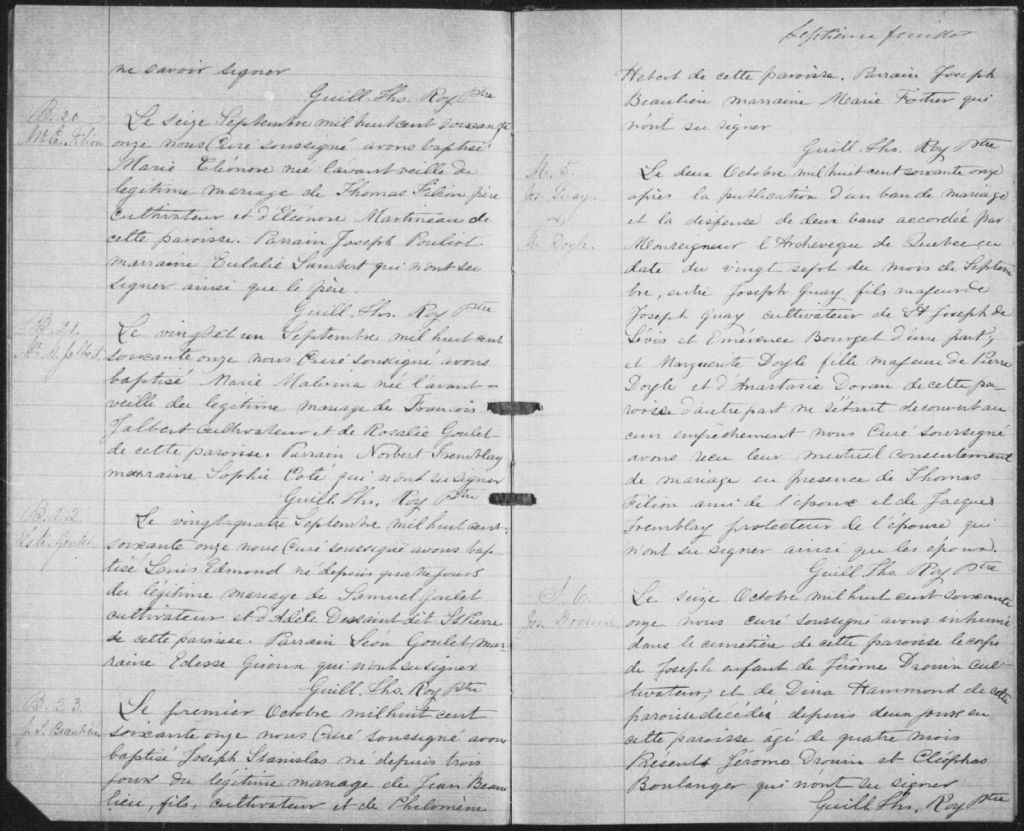 ne savoir signer
Guill. Ths. Roy Ptre
B. 20.
M. E. Filion
Le seize Septembre mil huit cent soixante
onze nous Curé soussigné avons baptisé
Marie Eléonore née l'avant veille du
legitime mariage de Thomas Filion père
cultivateur et d'Eleonore Martineau de
cette paroisse. Parrain Joseph Pouliot
marraine Eulalie Lambert qui n'ont su
signer ainsi que le père.
Guill. Ths. Roy Ptre
B. 21.
M. M. Jalbert.
Le vingt et un Septembre mil huit cent
soixante onze nous Curé soussigné avons
baptisé Marie Malvina née l'avant-
veille du legitime mariage de Francois
Jalbert cultivateur et de Rosalie Goulet
de cette paroisse. Parrain Norbert Tremblay
marraine Sophie Coté qui n'ont su signer
Guill. Ths. Roy Ptre
B. 22.
Ls. E. Goulet.
Le vingt-quatre Septembre mil huit cent-
soixante onze nous Curé soussigné avons bap-
tisé Louis Edmond né depuis quatre jours
du légitime mariage de Samuel Goulet
cultivateur et d'Adèle Dessaint dit St Pierre
de cette paroisse. Parrain Léon Goulet, mar
raine Edesse Giroux qui n'ont su signer
Guill. Ths. Roy Ptre
B. 23.
J. S. Beaulieu
Le premier Octobre mil huit cent
soixante onze nous Curé soussigné avons
baptisé Joseph Stanislas né depuis trois
jours du légitime mariage de Jean Beau
lieu, fils, cultivateur et de Philomène
Septième feuillet
Hebert de cette paroisse. Parrain Joseph
Beaulieu marraine Marie Fortier qui
n'ont su signer
Guill. Ths. Roy Ptre
M. 5.
Jos. Guay
&
M. Doyle.
Le deux Octobre mil huit cent soixante onze
après la publication d'un ban de mariage
et la dispense de deux bans accordée par
Monseigneur l'Archeveque de Quebec en
date du vingt sept du mois de Septem
bre, entre Joseph Guay fils majeur de
Joseph Guay cultivateur de St Joseph de
Lévis et Emérence Bourget d'une part,
et Marguerite Doyle fille majeure de Pierre
Doyle et d'Anastasie Doran de cette pa-
roisse d'autre part ne s'étant decouvert au
cun empêchement nous Curé soussigné
avons recu leur mutuel consentement
de mariage en presence de Thomas
Filion ami de l'époux et de Jacque
Tremblay protecteur de l'épouse qui
n'ont su signer ainsi que les époux.
Guill. Ths. Roy Ptre
S. 6.
Jos. Drouin
Le seize Octobre mil huit cent soixante
onze nous curé soussigné avons inhumé
dans le cimetière de cette paroisse le corps
de Joseph enfant de Jérôme Drouin cul-
tivateur, et de Dina Hammond de cette
paroisse décédé depuis deux jours en
cette paroisse âgé de quatre mois
Présents Jérome Drouin et Cléophas
Boulanger qui n'ont su signer
Guill. Ths. Roy Ptre